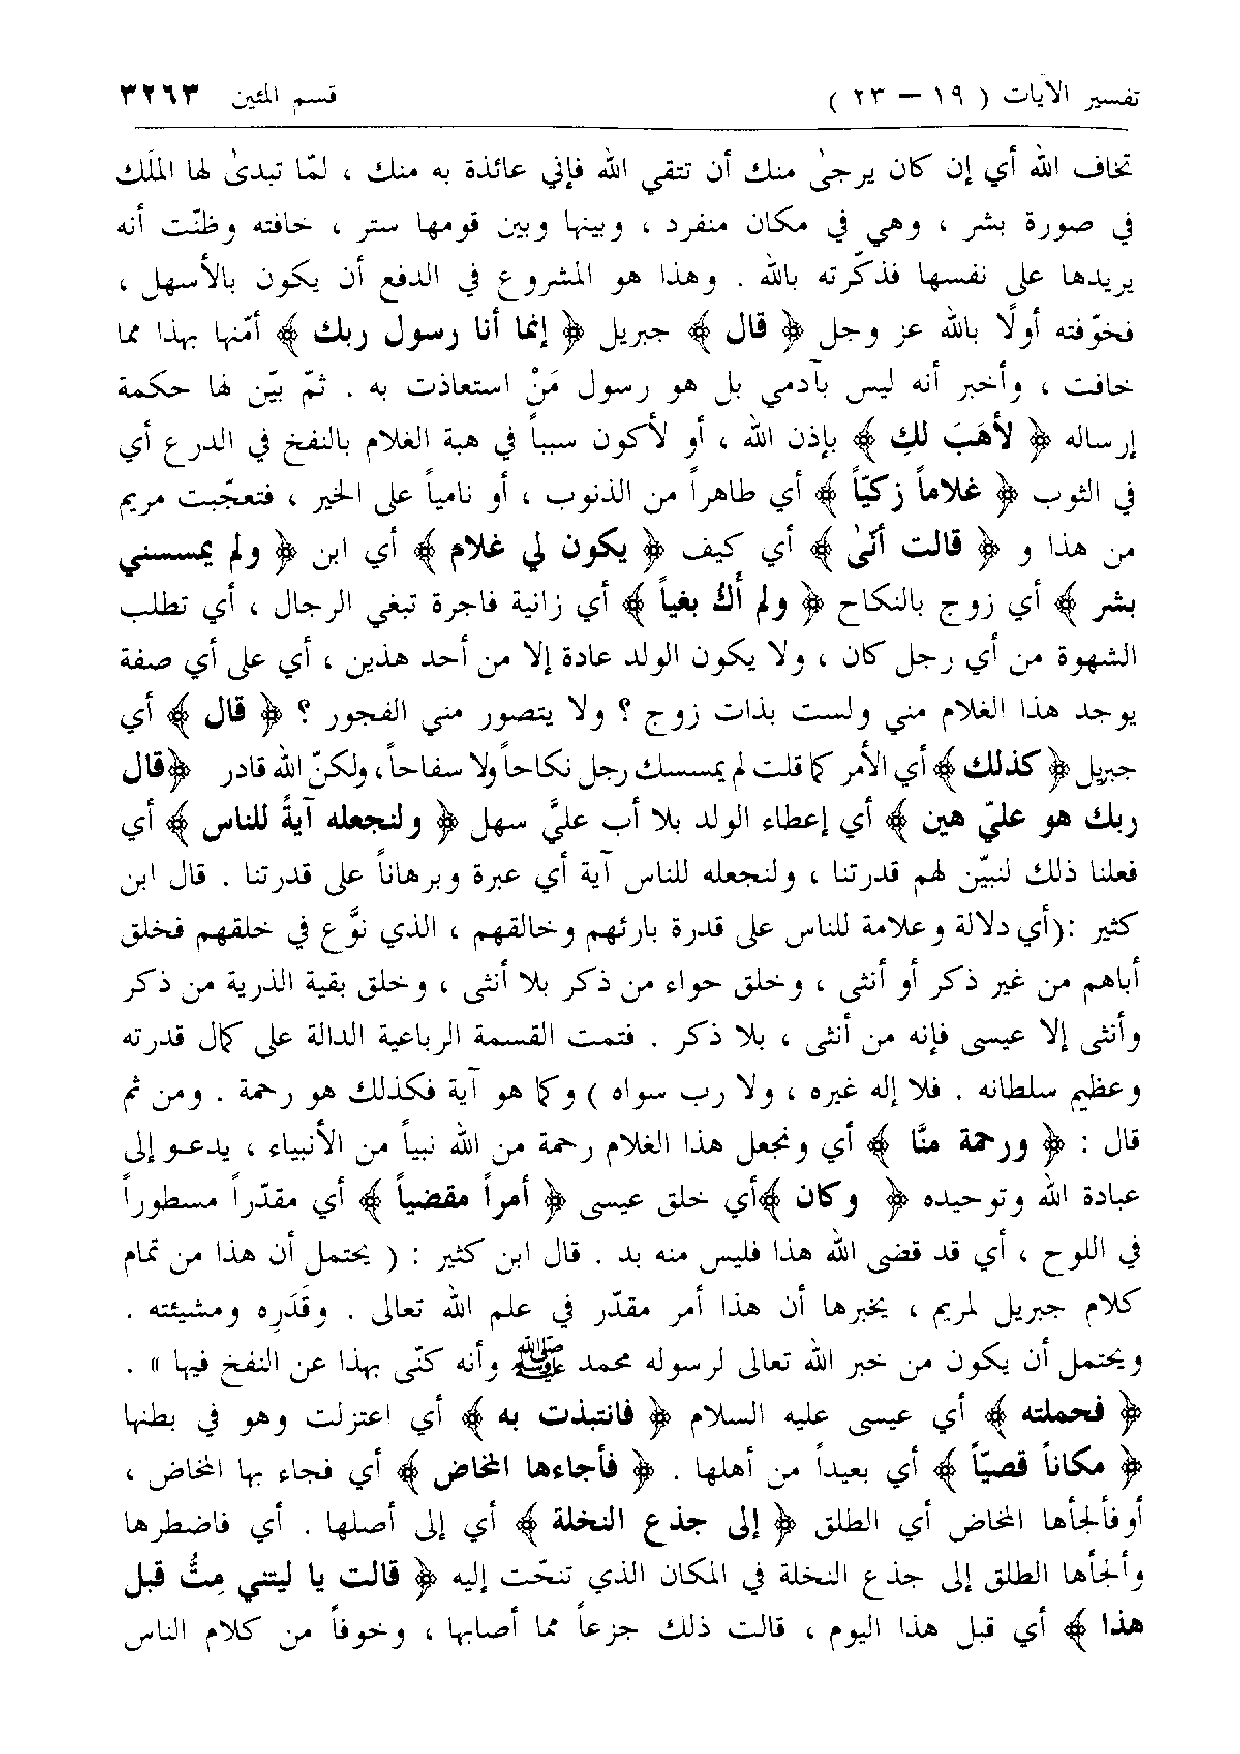 تفسير الآيات ( ١٩ — ٢٣ )
قسم المئين
٣٢٦٣
تخاف الله أي إن كان يرجىٰ منك أن تتقي الله فإني عائذة به منك ، لمّا تبدىٰ لها الملَك
في صورة بشر ، وهي في مكان منفرد ، وبينها وبين قومها ستر ، خافته وظنّت أنه
يريدها على نفسها فذكّرته بالله . وهذا هو المشروع في الدفع أن يكون بالأسهل ،
فخوّفته أولًا بالله عز وجل ﴿ قال ﴾ جبريل ﴿ إنما أنا رسول ربك ﴾ أمّنها بهذا مما
خافت ، وأخبر أنه ليس بآدمي بل هو رسول مَنْ استعاذت به . ثمّ بيّن لها حكمة
إرساله ﴿ لأهَبَ لكِ ﴾ بإذن الله ، أو لأكون سبباً في هبة الغلام بالنفخ في الدرع أي
في الثوب ﴿ غلاماً زكيّاً ﴾ أي طاهراً من الذنوب ، أو نامياً على الخير ، فتعجّبت مريم
من هذا و ﴿ قالت أنّى ﴾ أي كيف ﴿ يكون لي غلام ﴾ أي ابن ﴿ ولم يمسسني
بشر ﴾ أي زوج بالنكاح ﴿ ولم أكُ بغياً ﴾ أي زانية فاجرة تبغي الرجال ، أي تطلب
الشهوة من أي رجل كان ، ولا يكون الولد عادة إلا من أحد هذين ، أي على أي صفة
يوجد هذا الغلام مني ولست بذات زوج ؟ ولا يتصور مني الفجور ؟ ﴿ قال ﴾ أي
جبريل ﴿ كذلك ﴾ أي الأمر كما قلت لم يمسسك رجل نكاحاً ولا سفاحاً ، ولكنّ الله قادر ﴿قال
ربك هو عليّ هين ﴾ أي إعطاء الولد بلا أب عليَّ سهل ﴿ ولنجعله آيةً للناس ﴾ أي
فعلنا ذلك لنبيّن لهم قدرتنا ، ولنجعله للناس آية أي عبرة وبرهاناً على قدرتنا . قال ابن
كثير :(أي دلالة وعلامة للناس على قدرة بارئهم وخالقهم ، الذي نوَّع في خلقهم فخلق
أباهم من غير ذكر أو أنثى ، وخلق حواء من ذكر بلا أنثى ، وخلق بقية الذرية من ذكر
وأنثى إلا عيسى فإنه من أنثى ، بلا ذكر . فتمت القسمة الرباعية الدالة على كمال قدرته
وعظيم سلطانه . فلا إله غيره ، ولا رب سواه ) وكما هو آية فكذلك هو رحمة . ومن ثم
قال : ﴿ ورحمة منَّا ﴾ أي ونجعل هذا الغلام رحمة من الله نبياً من الأنبياء ، يدعو إلى
عبادة الله وتوحيده ﴿ وكان ﴾أي خلق عيسى ﴿ أمراً مقضياً ﴾ أي مقدّراً مسطوراً
في اللوح ، أي قد قضى الله هذا فليس منه بد . قال ابن كثير : ( يحتمل أن هذا من تمام
كلام جبريل لمريم ، يخبرها أن هذا أمر مقدّر في علم الله تعالى . وقَدَرِه ومشيئته .
ويحتمل أن يكون من خبر الله تعالى لرسوله محمد ﷺ وأنه كنّى بهذا عن النفخ فيها » .
﴿ فحملته ﴾ أي عيسى عليه السلام ﴿ فانتبذت به ﴾ أي اعتزلت وهو في بطنها
﴿ مكاناً قصيّاً ﴾ أي بعيداً من أهلها . ﴿ فأجاءها المخاض ﴾ أي فجاء بها المخاض ،
أو فألجأها المخاض أي الطلق ﴿ إلى جذع النخلة ﴾ أي إلى أصلها . أي فاضطرها
وألجأها الطلق إلى جذع النخلة في المكان الذي تنحّت إليه ﴿ قالت يا ليتني مِتُّ قبل
هذا ﴾ أي قبل هذا اليوم ، قالت ذلك جزعاً مما أصابها ، وخوفاً من كلام الناس